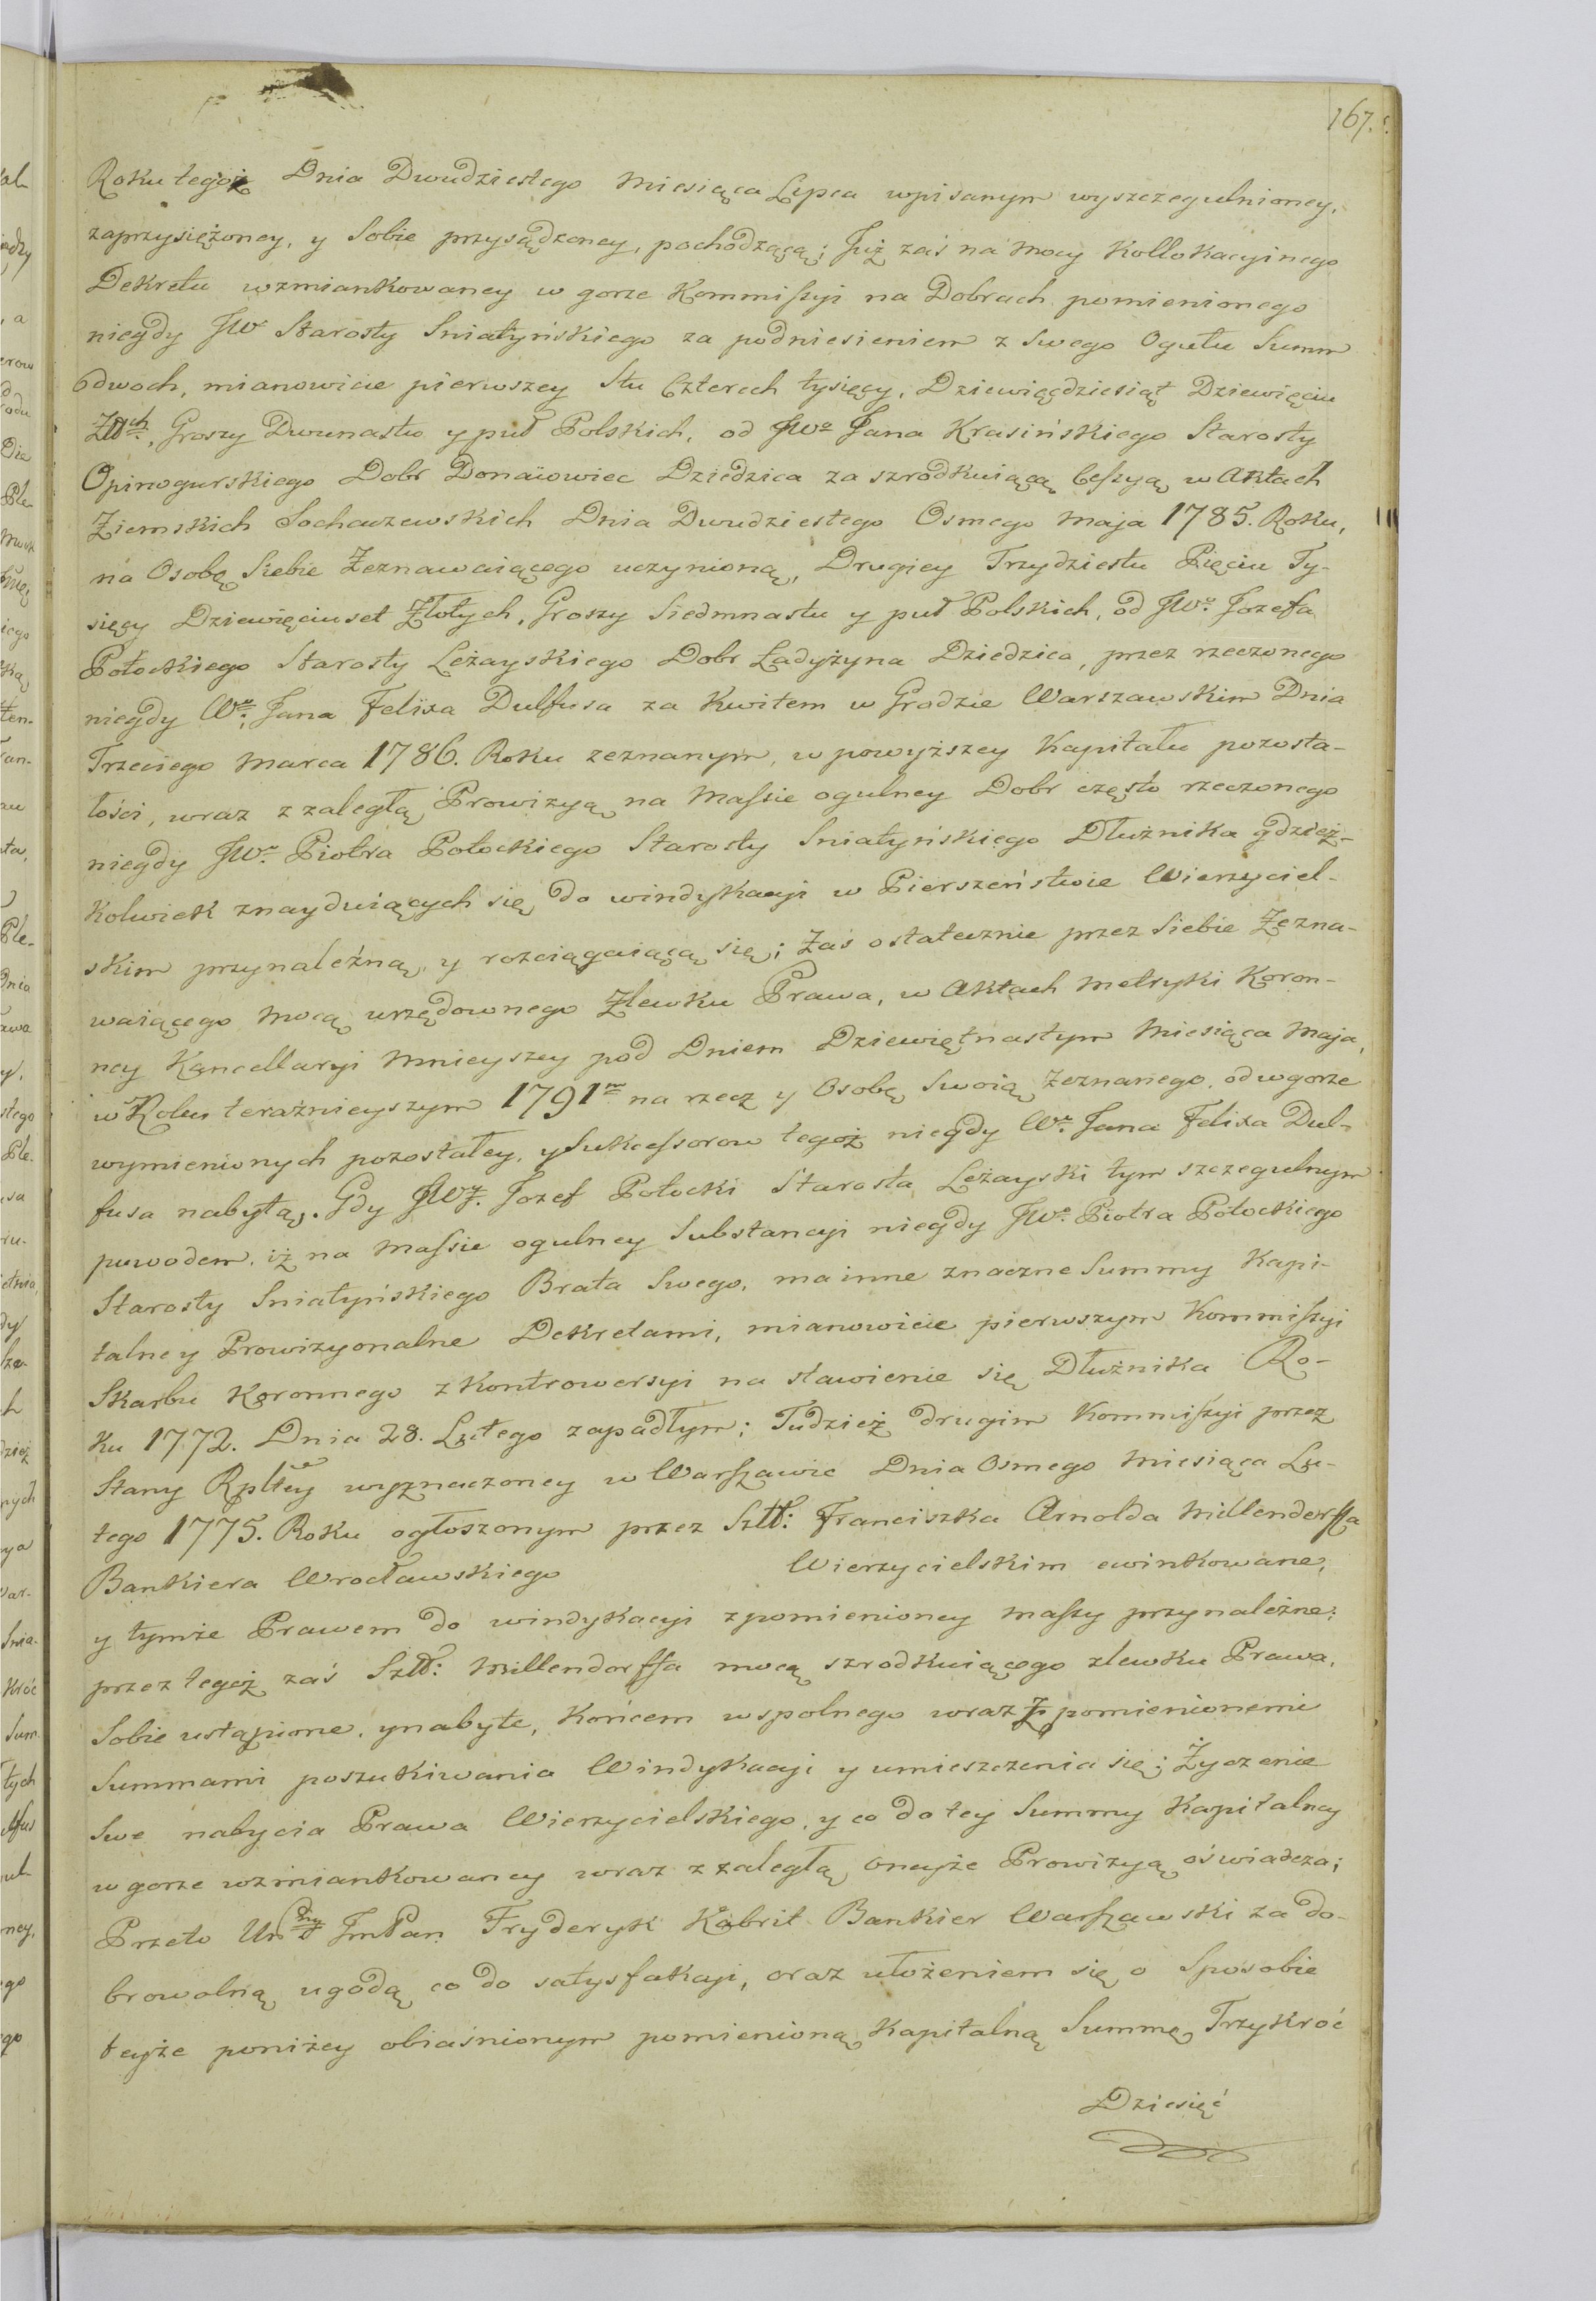 167.
Roku tegoż Dnia Dwudziestego Miesiąca Lipca wpisanym wyszczegulnioney,
zaprzysiężoney, y Sobie przysądzoney, pochodzącą; Już zaś na mocy Kollokacyinego
Dekretu wzmiankowaney w gorze Kommiſsyi na Dobrach pomienionego
niegdy JW Starosty Sniatyńskiego za podniesieniem z Swego Ogułu Summ
dwoch, mianowicie pierwszey Stu Czterech tysięcy, Dziewięćdziesiąt Dziewięciu
Złłch, Groszy Dwunastu y puł Polskich, od JWo Jana Krasińskiego Starosty
Opinogurskiego Dobr Donaiowiec Dziedzica za szrodkuiącą Ceſsyą w Aktach
Ziemskich Sochaczewskich Dnia Dwudziestego Osmego Maja 1785. Roku,
na Osobę Siebie Zeznawaiącego uczynioną, Drugiey Trzydziestu Pięciu Ty-
sięcy Dziewięciuset Złotych, Groszy Siedmnastu y puł Polskich, od JWo. Jozefa
Potockiego Starosty Leżayskiego Dobr Ładyżyna Dziedzica, przez rzeczonego
niegdy Wo. Jana Felixa Dulfusa za Kwitem w Grodzie Warszawskim Dnia
Trzeciego Marca 1786. Roku zeznanym, w powyższey Kapitału pozosta-
łości, wraz z zaległą Prowizyą na Maſsie ogulney Dobr często rzeczonego
niegdy JWo. Piotra Potockiego Starosty Sniatyńskiego Dłużnika gdzież-
kolwiek znayduiących się do windykacyi w Pierszeństwie Wierzyciel-
skim przynależną, y rozciągaiącą się; Zaś ostatecznie przez Siebie Zezna-
waiącego mocą urzędownego Zlewku Prawa, w Aktach Metryki Koron-
ney Kancellaryi Mnieyszey pod Dniem Dziewiętnastym Miesiąca Maja,
w Roku teraźnieyszym 1791m na rzecz y Osobę Swoią Zeznanego, od w gorze
wymienionych pozostałey, y Sukceſsorow tegoż niegdy Wo. Jana Felixa Dul-
fusa nabytą. Gdy JWż. Jozef Potocki Starosta Leżayski tym szczegulnym
powodem, iż na Maſsie ogulney Substancyi niegdy JWo. Piotra Potockiego
Starosty Sniatyńskiego Brata Swego, ma inne znaczne Summy Kapi-
talne y Prowizyonalne Dekretami, mianowicie pierwszym Kommiſsyi
Skarbu Koronnego z Kontrowersyi na stawienie się Dłużnika Ro-
ku 1772. Dnia 28. Lutego zapadłym; Tudzież drugim Kommiſsyi przez
Stany Rpltey wyznaczoney w Warſzawie Dnia Osmego Miesiąca Lu-
tego 1775. Roku ogłoszonym przez Szlł: Franciszka Arnolda Millendorffa
Bankiera Wrocławskiego Wierzycielskim ewinkowane,
y tymże Prawem do windykacyi z pomienioney maſsy przynależne;
przez tegoż zaś Szlł: Millendorffa mocą szrodkuiącego zlewku Prawa,
Sobie ustąpione, y nabyte, Końcem wspolnego wraz z pomienionemi
Summami poszukiwania Windykacyi y umieszczenia się; Życzenie
Swe nabycia Prawa Wierzycielskiego, y co do tey Summy Kapitalney
w gorze wzmiankowaney wraz z zaległą oneyże Prowizyą oświadcza;
Przeto Urodzny JmPan Fryderyk Kabrit Bankier Warſzawski za do-
browolną ugodą co do satysfakcyi, oraz ułożeniem się o Sposobie
teyże poniżey obiaśnionym pomienioną Kapitalną Summę Trzykroć
Dziesięć